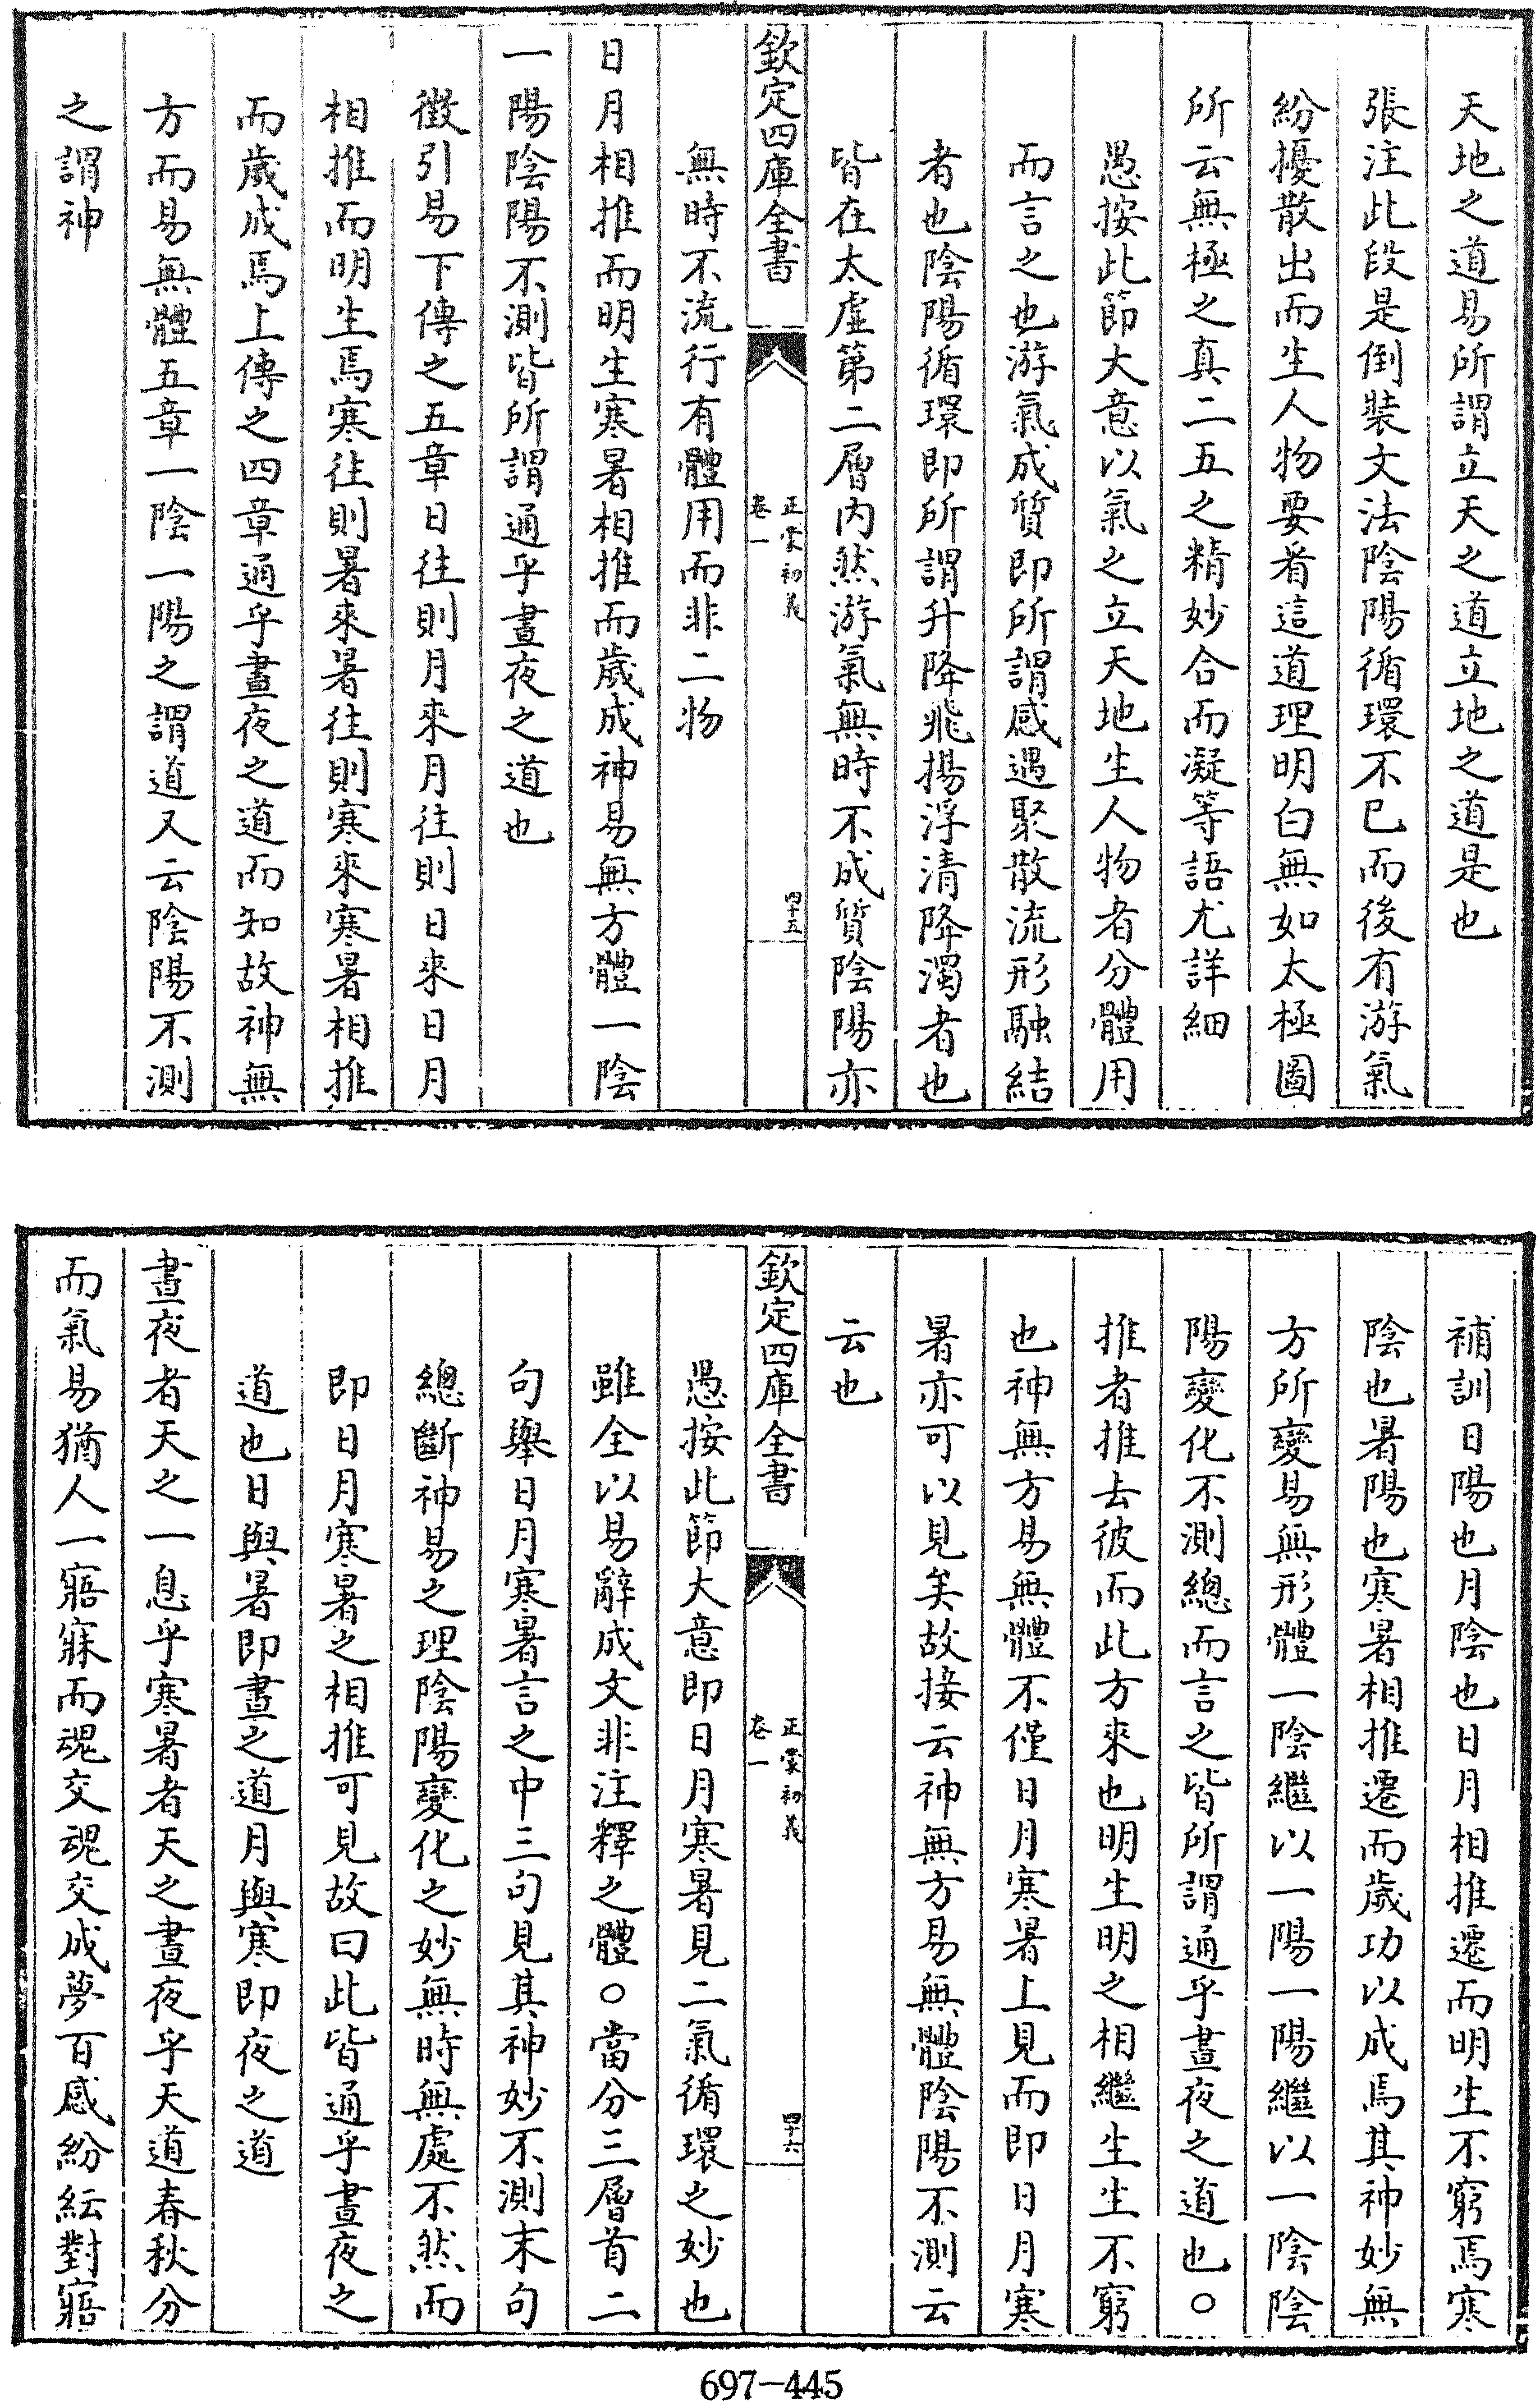 天地之道易所謂立天之道立地之道是也
張注此段是倒裝文法陰陽循環不已而後有游氣
紛擾散出而生人物要看這道理明白無如太極圖
所云無極之真二五之精妙合而凝等語尤詳細
愚按此節大意以氣之立天地生人物者分體用
而言之也游氣成質即所謂感遇聚散流形融結
者也陰陽循環即所謂升降飛揚浮清降濁者也
皆在太虛第二層內然游氣無時不成質陰陽亦
欽定四庫全書
正蒙初義
卷一
四十五
無時不流行有體用而非二物
日月相推而明生寒暑相推而歲成神易無方體一陰
一陽陰陽不測皆所謂通乎晝夜之道也
徵引易下傳之五章日往則月來月往則日來日月
相推而明生焉寒往則暑來暑往則寒來寒暑相推
而歲成焉上傳之四章通乎晝夜之道而知故神無
方而易無體五章一陰一陽之謂道又云陰陽不測
之謂神
補訓日陽也月陰也日月相推遷而明生不窮焉寒
陰也暑陽也寒暑相推遷而歲功以成焉其神妙無
方所變易無形體一陰繼以一陽一陽繼以一陰陰
陽變化不測總而言之皆所謂通乎晝夜之道也○
推者推去彼而此方來也明生明之相繼生生不窮
也神無方易無體不僅日月寒暑上見而即日月寒
暑亦可以見矣故接云神無方易無體陰陽不測云
云也
欽定四庫全書
正蒙初義
卷一
四十六
愚按此節大意即日月寒暑見二氣循環之妙也
雖全以易辭成文非注釋之體○當分三層首二
句舉日月寒暑言之中三句見其神妙不測末句
總斷神易之理陰陽變化之妙無時無處不然而
即日月寒暑之相推可見故曰此皆通乎晝夜之
道也日與暑即晝之道月與寒即夜之道
晝夜者天之一息乎寒暑者天之晝夜乎天道春秋分
而氣易猶人一寤寐而魂交魂交成夢百感紛紜對寤
697-445